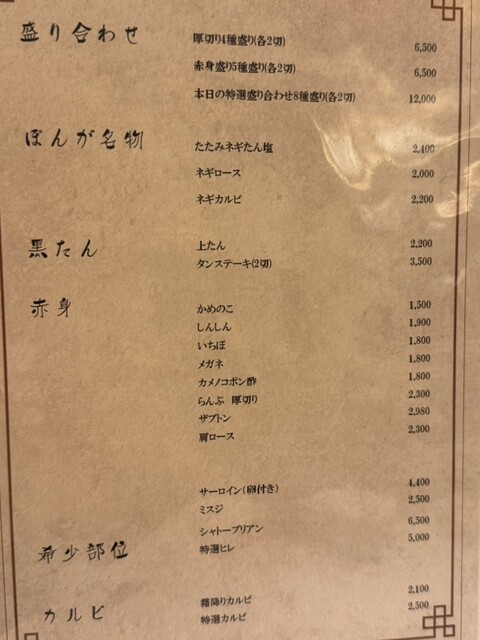 盛り合わせ
厚切り4種盛り(各2切) 6,500
赤身盛り5種盛り(各2切) 6,500
本日の特選盛り合わせ8種盛り(各2切) 12,000
ぼんが名物
たたみネギたん塩 2,400
ネギロース 2,000
ネギカルビ 2,200
黒たん
上たん 2,200
タンステーキ(2切) 3,500
赤身
かめのこ 1,500
しんしん 1,900
いちぼ 1,800
メガネ 1,800
カメノコポン酢 1,800
らんぷ 厚切り 2,300
ザブトン 2,980
肩ロース 2,300
サーロイン(卵付き) 4,400
ミスジ 2,500
シャトーブリアン 6,500
希少部位
特選ヒレ 5,000
カルビ
霜降りカルビ 2,100
特選カルビ 2,500